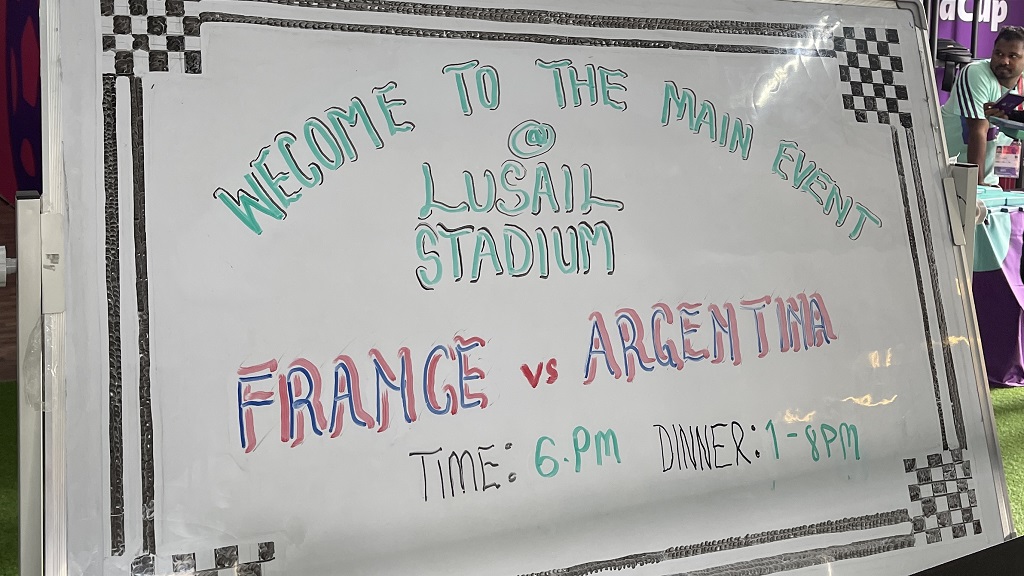 WELCOME TO THE MAIN EVENT
@
LUSAIL
STADIUM
FRANCE vs ARGENTINA
TIME: 6.PM DINNER: 1-8PM
aCup